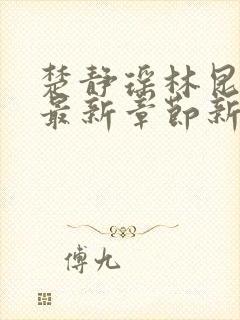 楚静瑶林昆
最新章节新
傅九